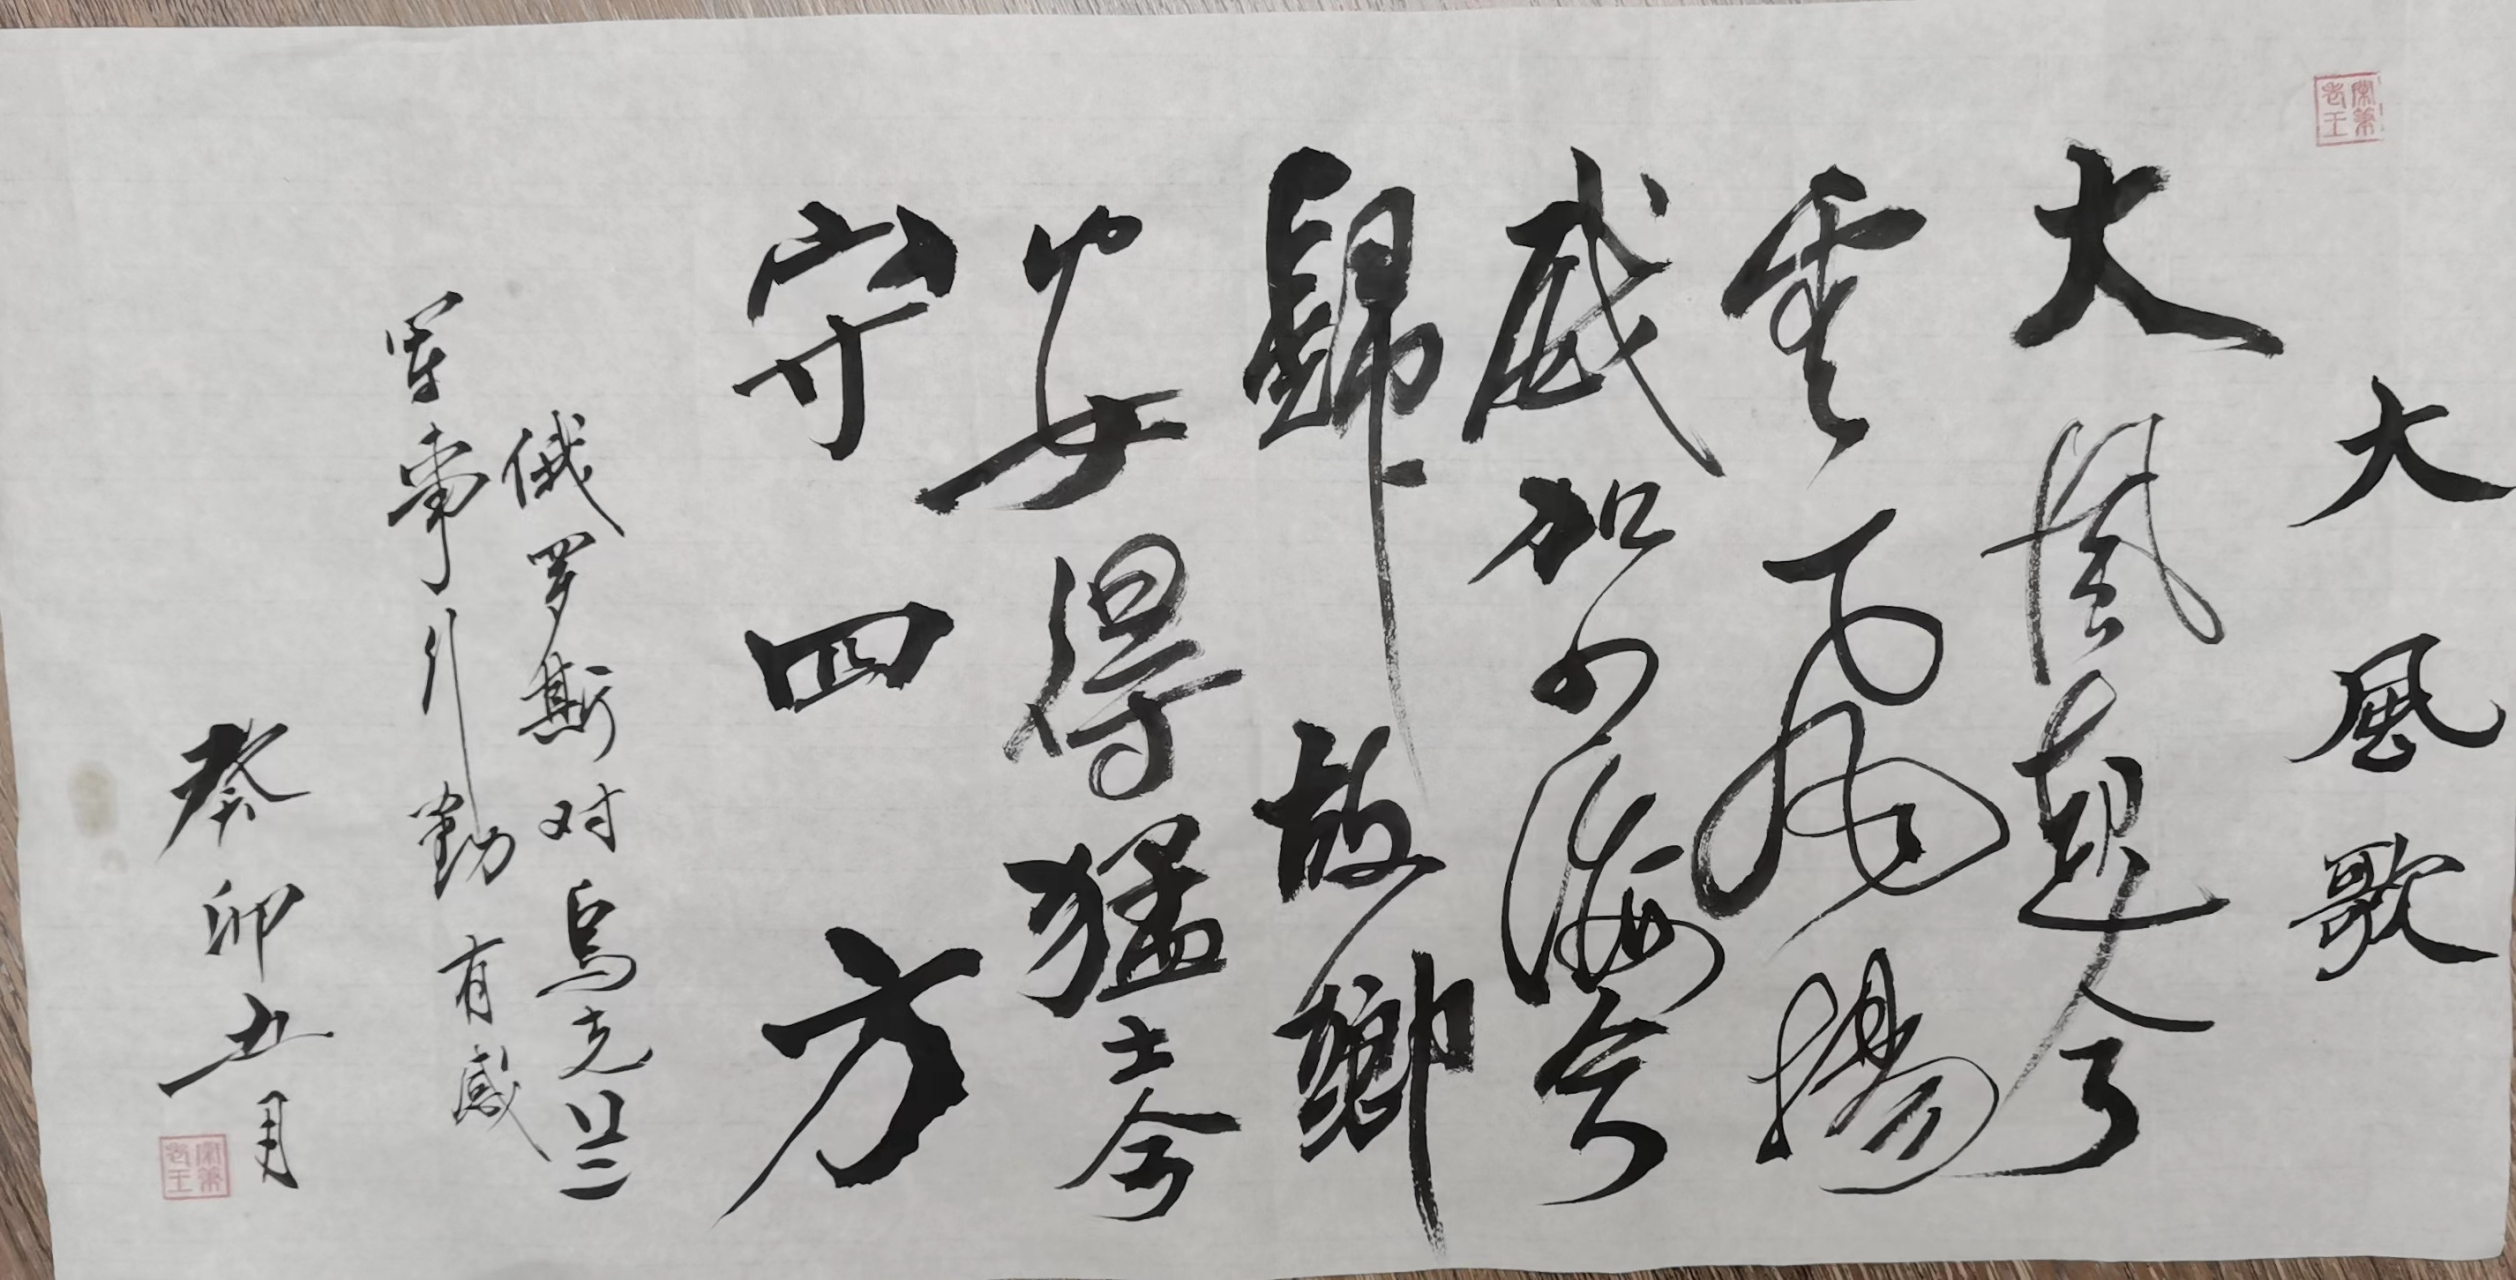 大風歌
大風起兮
雲飛揚
威加四海兮
歸故鄉
安得猛士兮
守四方
俄罗斯对乌克兰
军事行動有感
癸卯五月
老王